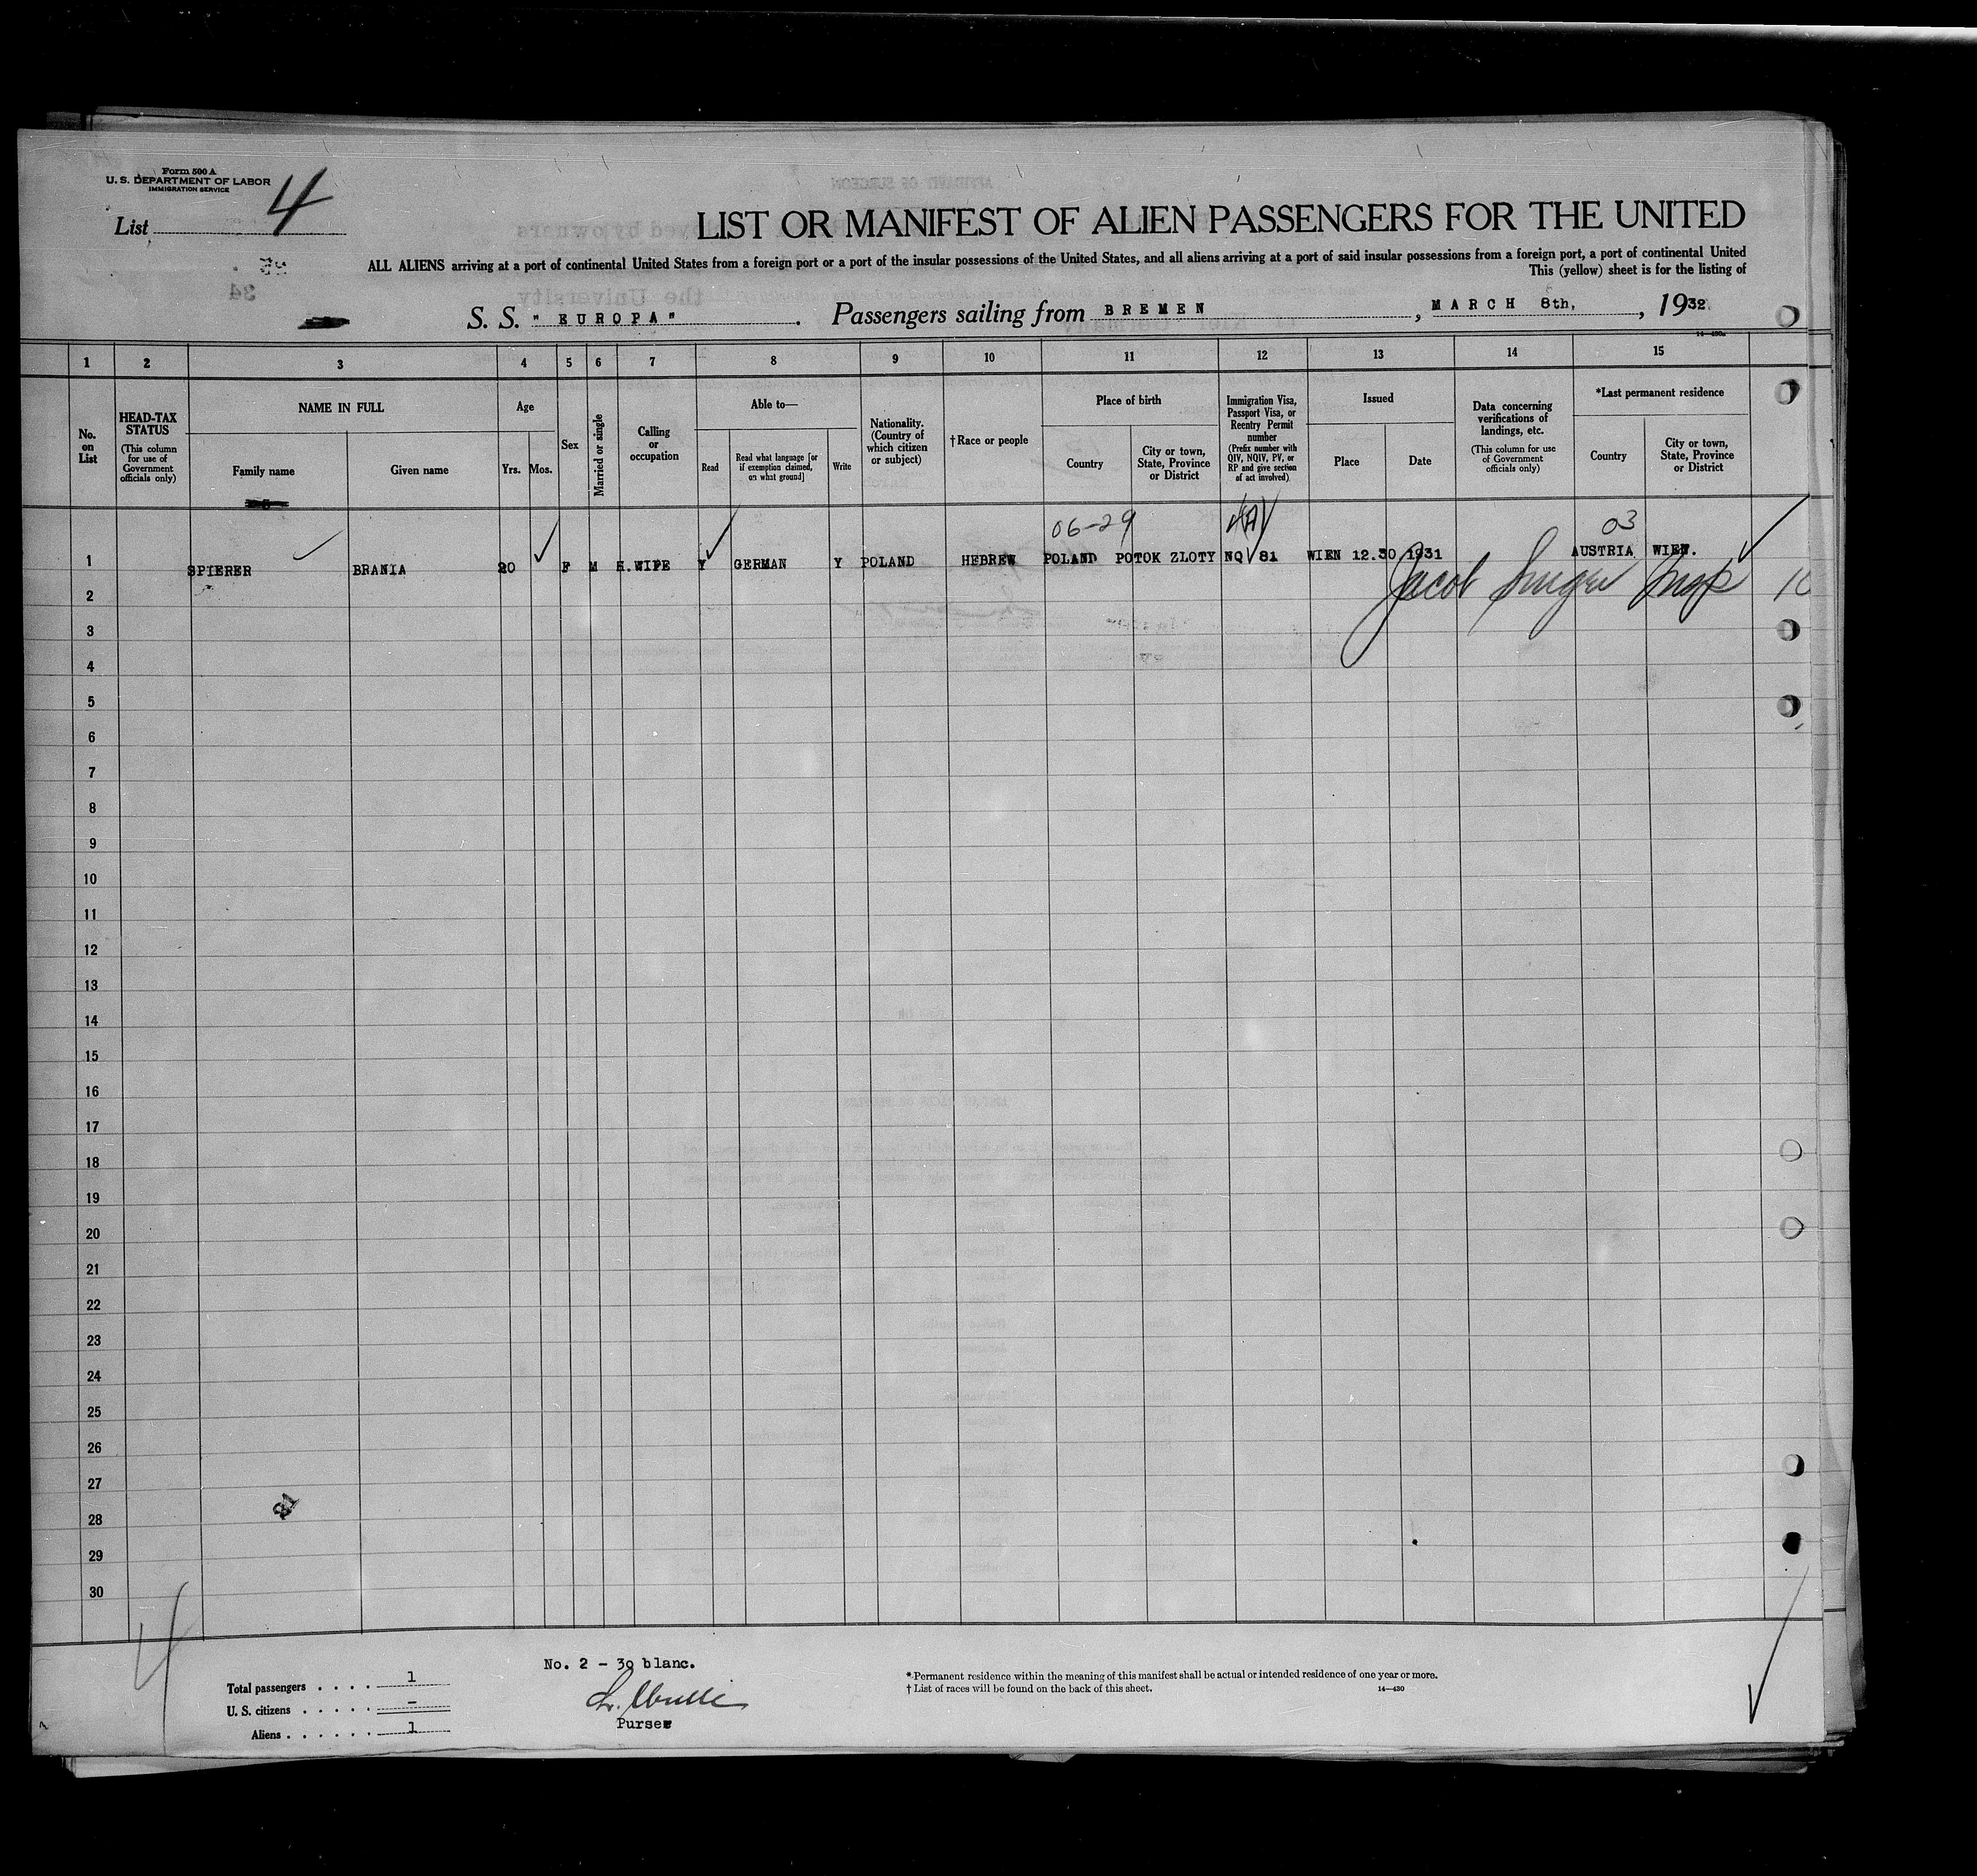 Form 500 A
U. S. DEPARTMENT OF LABOR
IMMIGRATION SERVICE
List 4
LIST OR MANIFEST OF ALIEN PASSENGERS FOR THE UNITED
ALL ALIENS arriving at a port of continental United States from a foreign port or a port of the insular possessions of the United States, and all aliens arriving at a port of said insular possessions from a foreign port, a port of continental United
This (yellow) sheet is for the listing of
S. S. "EUROPA". Passengers sailing from BREMEN, MARCH 8th, 1932.
14-430a
1 2 3 4 5 6 7 8 9 10 11 12 13 14 15
No. on List
HEAD-TAX STATUS (This column for use of Government officials only)
NAME IN FULL
Family name
Given name
Age
Yrs. Mos.
Sex
Married or single
Calling or occupation
Able to—
Read
Read what language [or if exemption claimed, on what ground]
Write
Nationality. (Country of which citizen or subject)
†Race or people
Place of birth
Country
City or town, State, Province or District
Immigration Visa, Passport Visa, or Reentry Permit number (Prefix number with QIV, NQIV, PV, or RP and give section of act involved)
Issued
Place
Date
Data concerning verifications of landings, etc. (This column for use of Government officials only)
*Last permanent residence
Country
City or town, State, Province or District
06-29 03
1 SPIERER BRANIA 20 F M H.WIFE Y GERMAN Y POLAND HEBREW POLAND POTOK ZLOTY NQ 81 WIEN 12.30 1931 AUSTRIA WIEN.
2 Jacob Insp
3
4
5
6
7
8
9
10
11
12
13
14
15
16
17
18
19
20
21
22
23
24
25
26
27
28
29
30
No. 2 - 30 blanc.
Total passengers . . . . 1
U. S. citizens . . . . . -
Aliens . . . . . . 1
Purser
* Permanent residence within the meaning of this manifest shall be actual or intended residence of one year or more.
† List of races will be found on the back of this sheet.
14—430